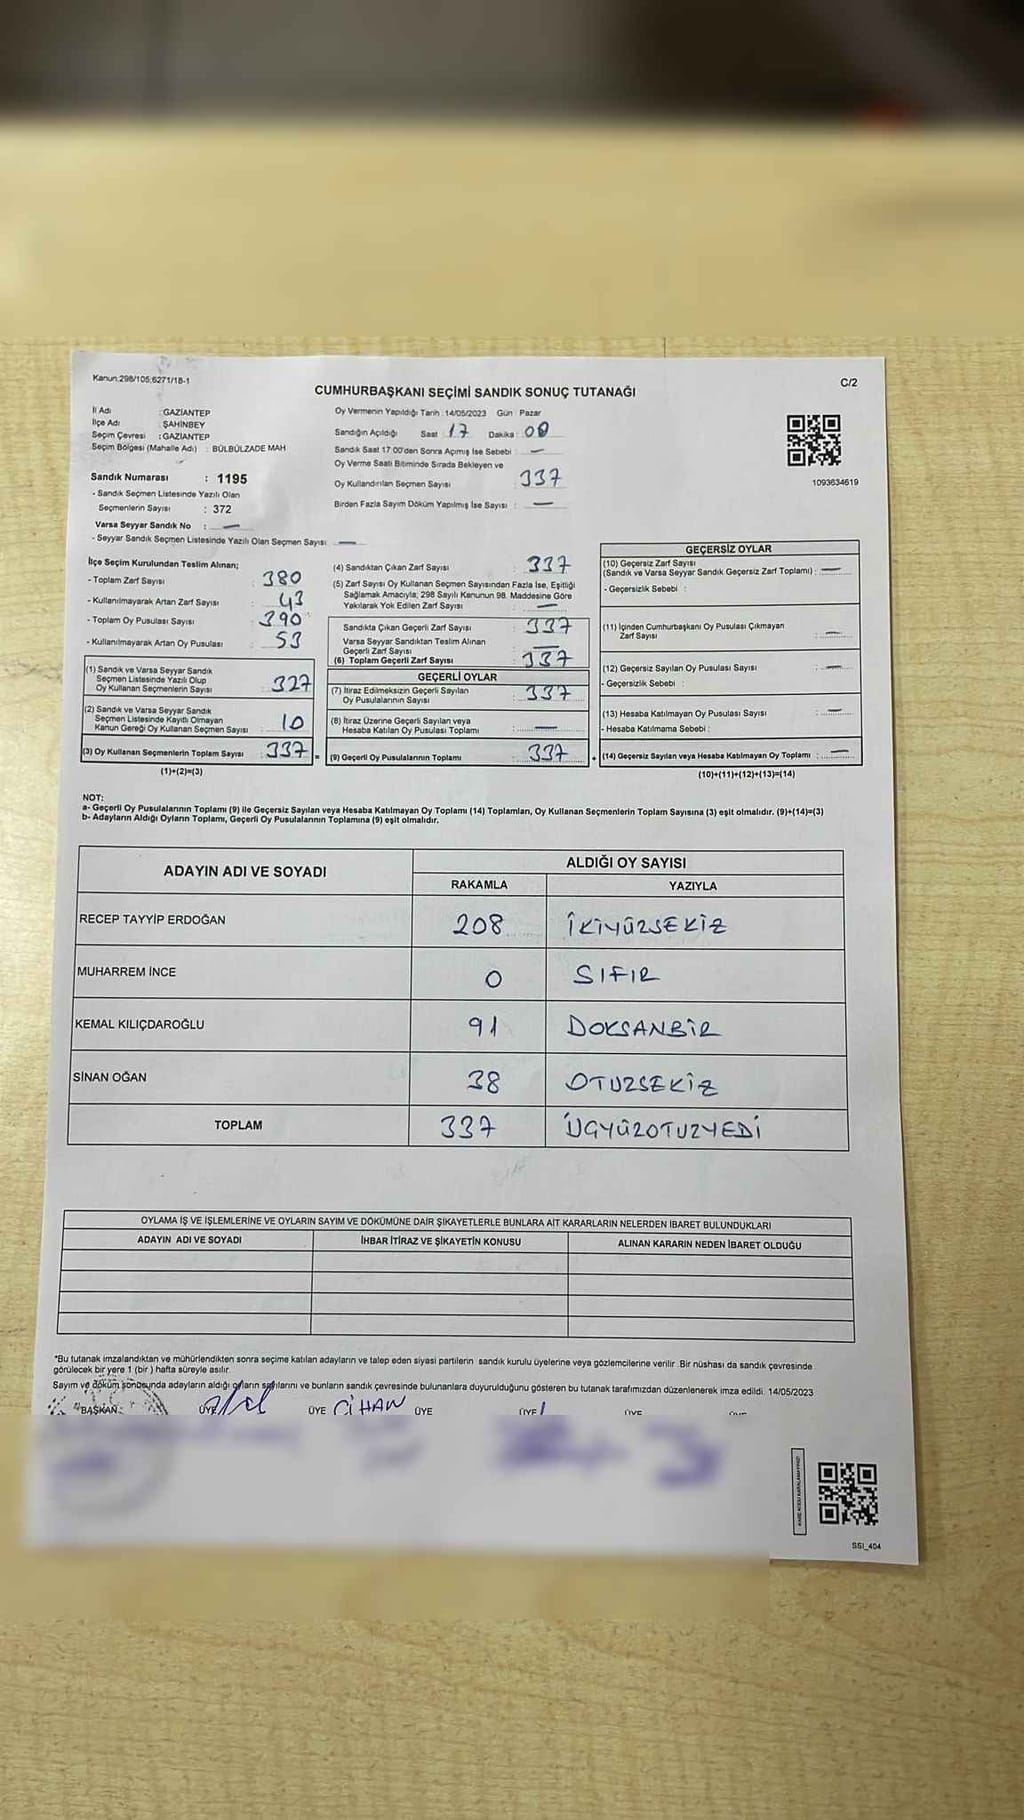 Kanun:298/105;6271/18-1
CUMHURBAŞKANI SEÇİMİ SANDIK SONUÇ TUTANAĞI
C/2
İl Adı : GAZİANTEP
İlçe Adı : ŞAHİNBEY
Seçim Çevresi : GAZİANTEP
Seçim Bölgesi (Mahalle Adı) : BÜLBÜLZADE MAH
Sandık Numarası : 1195
- Sandık Seçmen Listesinde Yazılı Olan
Seçmenlerin Sayısı : 372
Varsa Seyyar Sandık No : —
- Seyyar Sandık Seçmen Listesinde Yazılı Olan Seçmen Sayısı : —
Oy Vermenin Yapıldığı Tarih : 14/05/2023 Gün : Pazar
Sandığın Açıldığı Saat : 17 Dakika : 00
Sandık Saat 17:00'den Sonra Açımış İse Sebebi : —
Oy Verme Saati Bitiminde Sırada Bekleyen ve
Oy Kullandırılan Seçmen Sayısı : 337
Birden Fazla Sayım Döküm Yapılmış İse Sayısı : —
1093634619
İlçe Seçim Kurulundan Teslim Alınan;
- Toplam Zarf Sayısı : 380
- Kullanılmayarak Artan Zarf Sayısı : 43
- Toplam Oy Pusulası Sayısı : 390
- Kullanılmayarak Artan Oy Pusulası : 53
(1) Sandık ve Varsa Seyyar Sandık
Seçmen Listesinde Yazılı Olup
Oy Kullanan Seçmenlerin Sayısı : 327
(2) Sandık ve Varsa Seyyar Sandık
Seçmen Listesinde Kayıtlı Olmayan
Kanun Gereği Oy Kullanan Seçmen Sayısı : 10
(3) Oy Kullanan Seçmenlerin Toplam Sayısı : 337 =
(1)+(2)=(3)
(4) Sandıktan Çıkan Zarf Sayısı : 337
(5) Zarf Sayısı Oy Kullanan Seçmen Sayısından Fazla İse, Eşitliği
Sağlamak Amacıyla; 298 Sayılı Kanunun 98. Maddesine Göre
Yakılarak Yok Edilen Zarf Sayısı : —
Sandıkta Çıkan Geçerli Zarf Sayısı : 337
Varsa Seyyar Sandıktan Teslim Alınan
Geçerli Zarf Sayısı : —
(6) Toplam Geçerli Zarf Sayısı : 337
GEÇERLİ OYLAR
(7) İtiraz Edilmeksizin Geçerli Sayılan
Oy Pusulalarının Sayısı : 337
(8) İtiraz Üzerine Geçerli Sayılan veya
Hesaba Katılan Oy Pusulası Toplamı : —
(9) Geçerli Oy Pusulalarının Toplamı : 337 +
GEÇERSİZ OYLAR
(10) Geçersiz Zarf Sayısı
(Sandık ve Varsa Seyyar Sandık Geçersiz Zarf Toplamı) : —
- Geçersizlik Sebebi :
(11) İçinden Cumhurbaşkanı Oy Pusulası Çıkmayan
Zarf Sayısı : —
(12) Geçersiz Sayılan Oy Pusulası Sayısı : —
- Geçersizlik Sebebi :
(13) Hesaba Katılmayan Oy Pusulası Sayısı : —
- Hesaba Katılmama Sebebi :
(14) Geçersiz Sayılan veya Hesaba Katılmayan Oy Toplamı : —
(10)+(11)+(12)+(13)=(14)
NOT:
a- Geçerli Oy Pusulalarının Toplamı (9) ile Geçersiz Sayılan veya Hesaba Katılmayan Oy Toplamı (14) Toplamları, Oy Kullanan Seçmenlerin Toplam Sayısına (3) eşit olmalıdır. (9)+(14)=(3)
b- Adayların Aldığı Oyların Toplamı, Geçerli Oy Pusulalarının Toplamına (9) eşit olmalıdır.
ADAYIN ADI VE SOYADI
ALDIĞI OY SAYISI
RAKAMLA YAZIYLA
RECEP TAYYİP ERDOĞAN 208 İKİYÜZSEKİZ
MUHARREM İNCE 0 SIFIR
KEMAL KILIÇDAROĞLU 91 DOKSANBİR
SİNAN OĞAN 38 OTUZSEKİZ
TOPLAM 337 ÜÇYÜZOTUZYEDİ
OYLAMA İŞ VE İŞLEMLERİNE VE OYLARIN SAYIM VE DÖKÜMÜNE DAİR ŞİKAYETLERLE BUNLARA AİT KARARLARIN NELERDEN İBARET BULUNDUKLARI
ADAYIN ADI VE SOYADI İHBAR İTİRAZ VE ŞİKAYETİN KONUSU ALINAN KARARIN NEDEN İBARET OLDUĞU
*Bu tutanak imzalandıktan ve mühürlendikten sonra seçime katılan adayların ve talep eden siyasi partilerin sandık kurulu üyelerine veya gözlemcilerine verilir. Bir nüshası da sandık çevresinde
görülecek bir yere 1 (bir) hafta süreyle asılır.
Sayım ve döküm sonucunda adayların aldığı oyların sayılarını ve bunların sandık çevresinde bulunanlara duyurulduğunu gösteren bu tutanak tarafımızdan düzenlenerek imza edildi. 14/05/2023
BAŞKAN ÜYE ÜYE CİHAN ÜYE ÜYE ÜYE
SSI_404